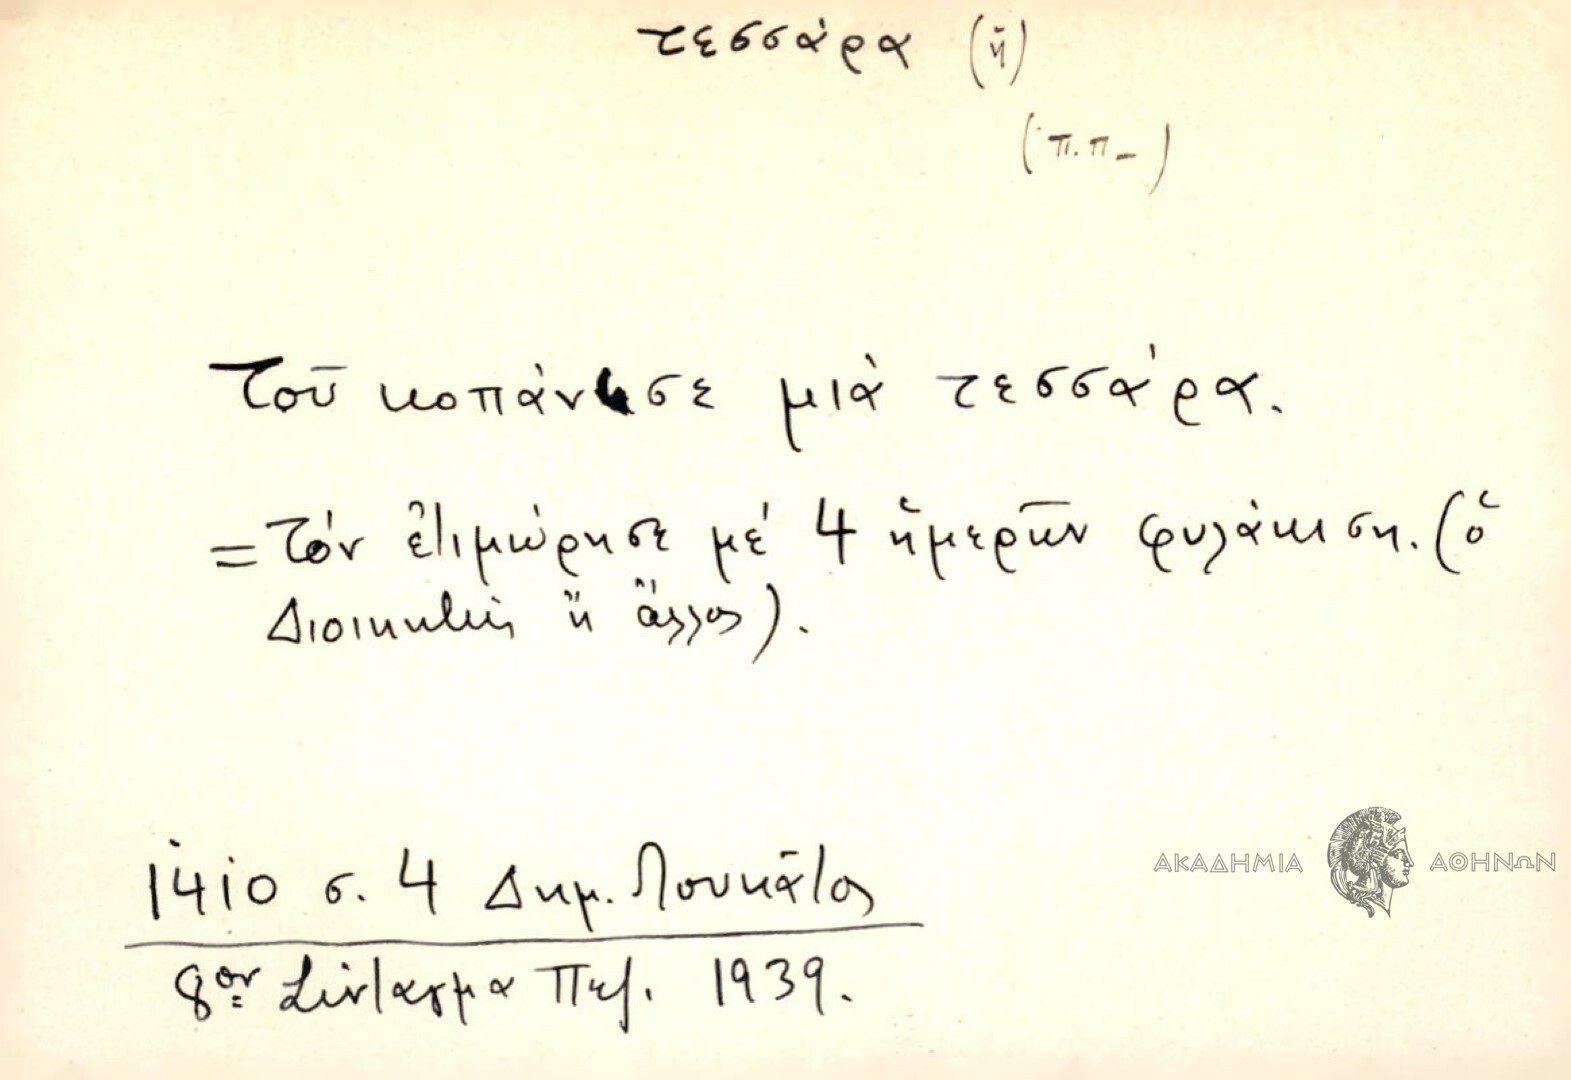 τεσσάρα (ἡ)
(π.π-)
Τοῦ κοπάνησε μιὰ τεσσάρα.
= Τόν ἐτιμώρησε μέ 4 ἡμερῶν φυλάκιση. (ὁ
Διοικητὴς ἤ ἄλλος).
1410 σ. 4 Δημ. Λουκᾶτος
8ον Σύνταγμα Πεζ. 1939.
ΑΚΑΔΗΜΙΑ ΑΘΗΝΩΝ